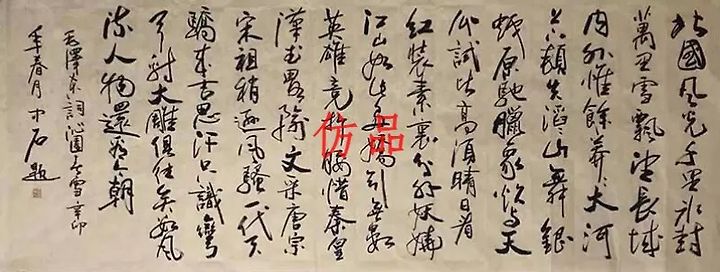 北國風光千里冰封
萬里雪飄望長城
内外惟餘莽々大河
上下頓失滔々山舞銀
蛇原馳臘象欲與天
公試比高須晴日看
紅裝素裹分外妖嬈
江山如此多嬌引無數
英雄競折腰惜秦皇
漢武略輸文采唐宗
宋祖稍遜風騷一代天
驕成吉思汗只識彎
弓射大雕俱往矣數風
流人物還看今朝
毛澤東詞沁園春雪辛卯
年春月石題
仿品